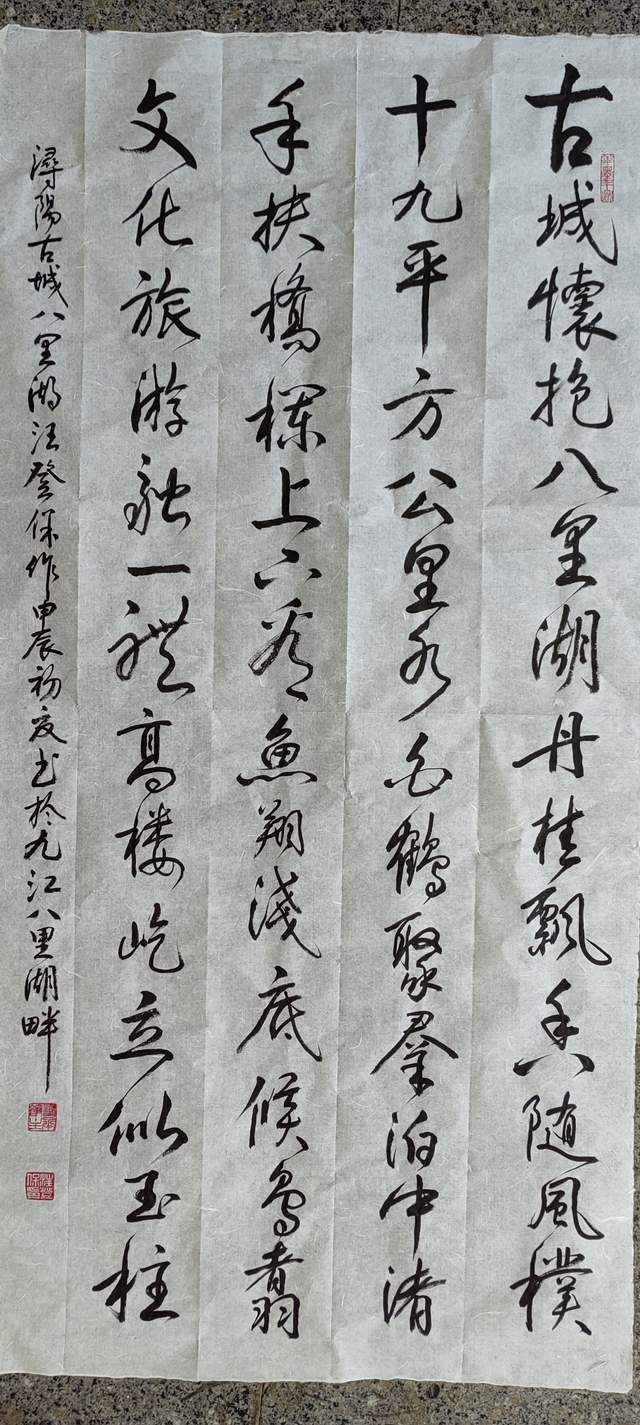 古城懷抱八里湖丹桂飘香随風樸
十九平方公里水白鶴聚羣泊中渚
手扶橋欄上下看魚翔淺底候鳥翥
文化旅游融一體高楼屹立似玉柱
潯陽古城八里湖汪登保作甲辰初夏书於九江八里湖畔